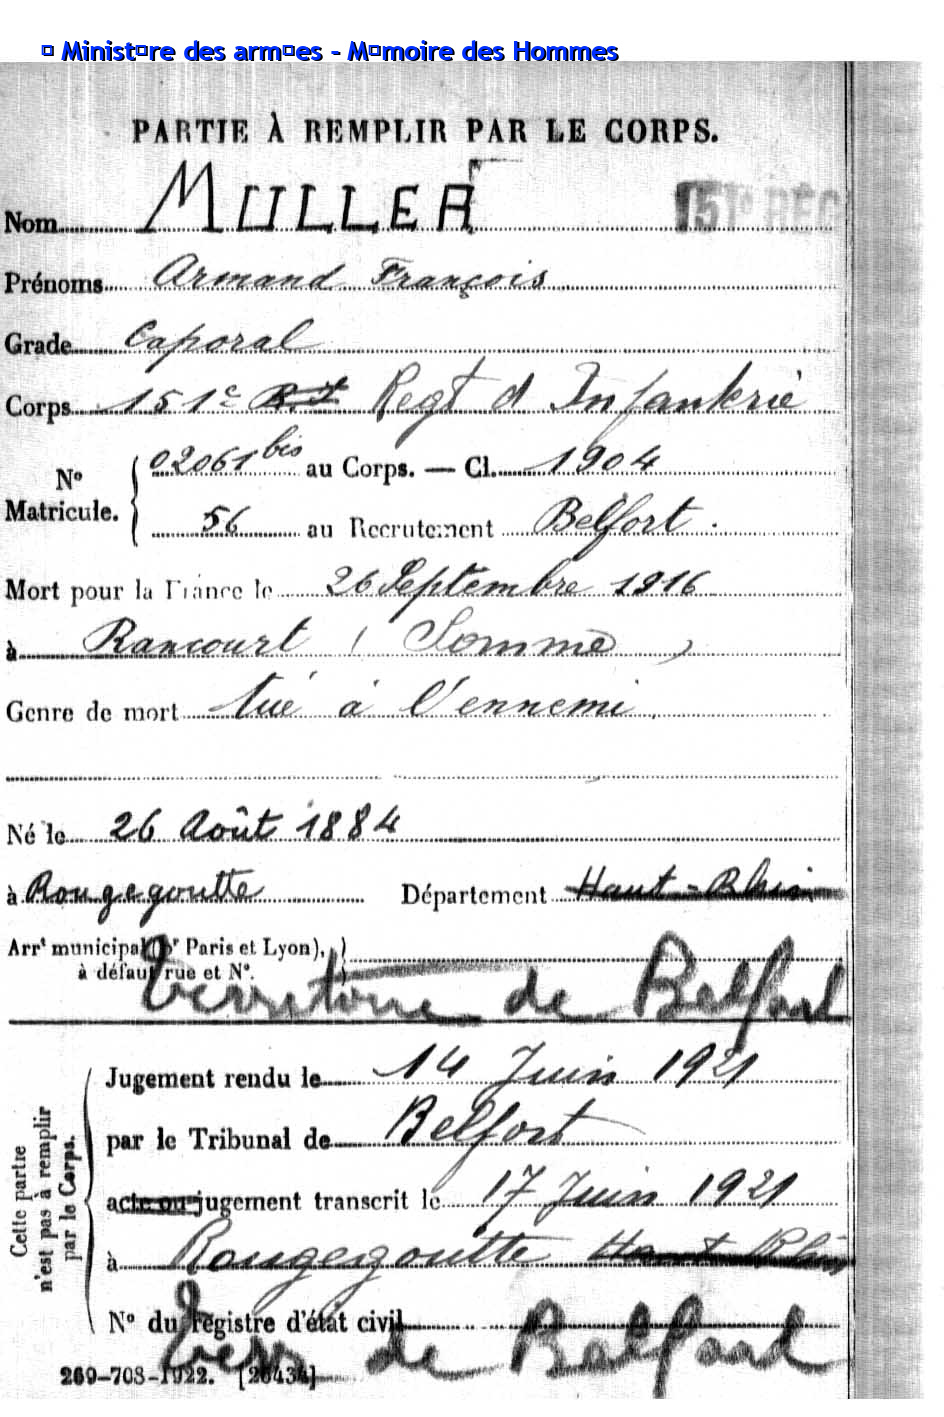 © Ministère des armées - Mémoire des Hommes
PARTIE À REMPLIR PAR LE CORPS.
151e RÉG
Nom MULLER
Prénoms Armand François
Grade Caporal
Corps 151e R.I Regt d Infanterie
N° Matricule. 02061 bis au Corps. — Cl. 1904
56 au Recrutement Belfort.
Mort pour la France le 26 Septembre 1916
à Rancourt (Somme)
Genre de mort tué à l'ennemi.
Né le 26 Août 1884
à Rougegoutte Département Haut-Rhin
Arrt municipal (pr Paris et Lyon),
à défaut rue et N°.
Territoire de Belfort
Cette partie n'est pas à remplir par le Corps.
Jugement rendu le 14 Juin 1921
par le Tribunal de Belfort
acte ou jugement transcrit le 17 Juin 1921
à Rougegoutte Haut Rhin
N° du registre d'état civil
Terr de Belfort
269-708-1922. [26434]